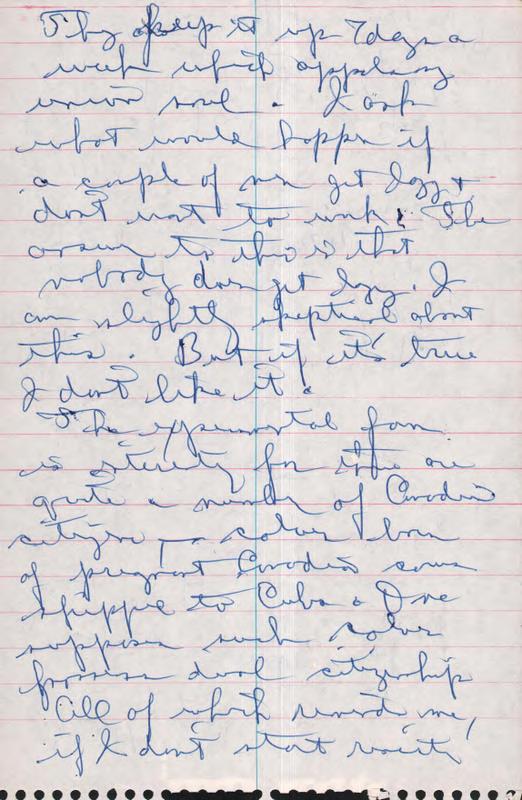 They keep it up 7 days a
week which appalls my
union soul. I ask
what would happen if
a couple of men get lazy &
don't want to work. The
answer to this is that
nobody does get lazy. I
am slightly skeptical about
this. But if it's true
I don't like it.
The experimental farm
is interesting for there are
quite a number of Canadian
citizens — calves born
of pregnant Canadian cows
shipped to Cuba. One
supposes such calves
possess dual citizenship
All of which reminds me,
if I don't start